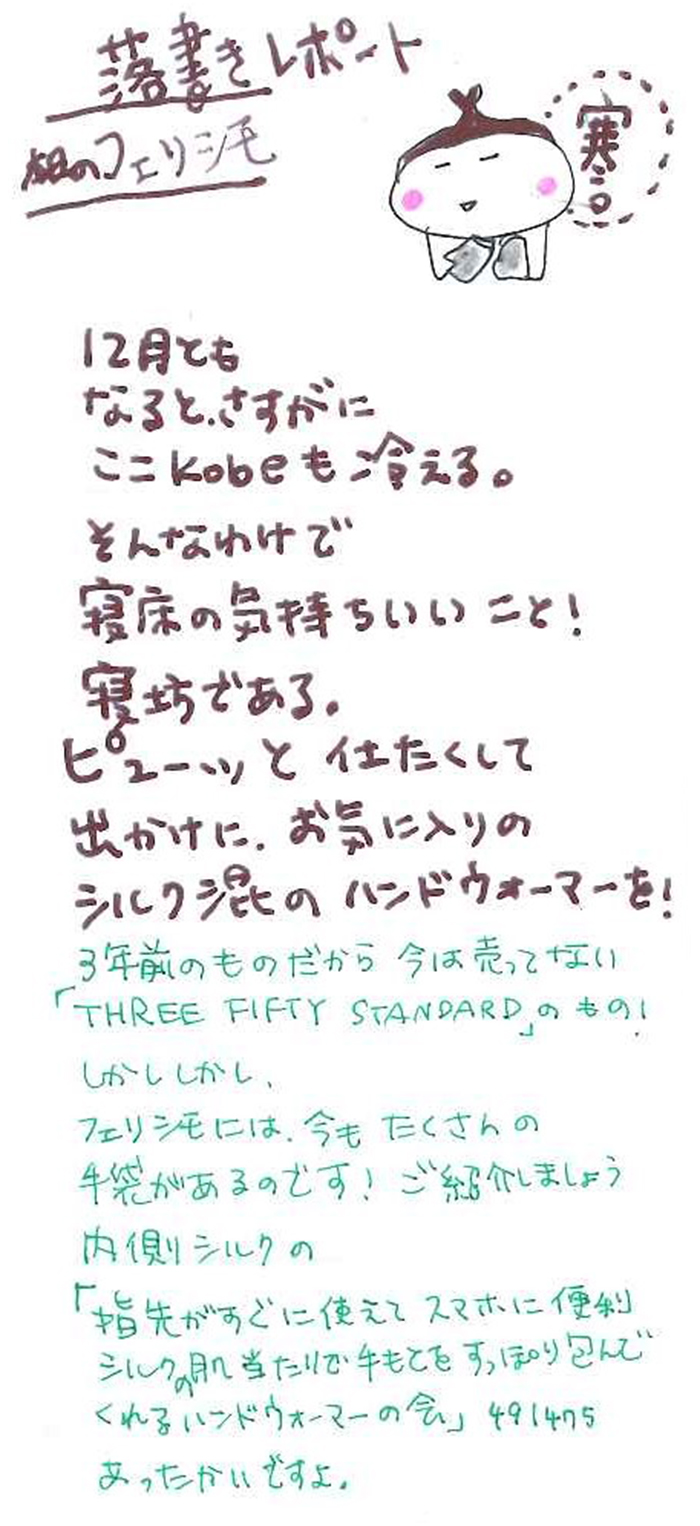 落書きレポート
のフェリシモ
寒
12月とも
なると、さすがに
ここkobeも冷える。
そんなわけで
寝床の気持ちいいこと!
寝坊である。
ピューッと仕たくして
出かけに、お気に入りの
シルク混のハンドウォーマーを!
3年前のものだから 今は売ってない
「THREE FIFTY STANDARD」のもの!
しかししかし、
フェリシモには、今も たくさんの
手袋があるのです! ご紹介しましょう
内側シルクの
「指先がすぐに使えて スマホに便利
シルクの肌当たりで手もとをすっぽり包んで
くれるハンドウォーマーの会」 491475
あったかいですよ。